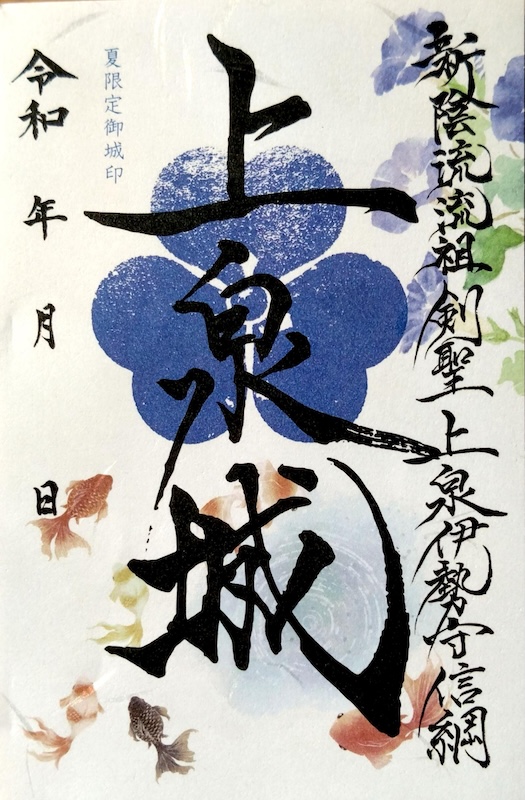 新陰流流祖剣聖上泉伊勢守信綱
上泉城
夏限定御城印
令和 年 月 日